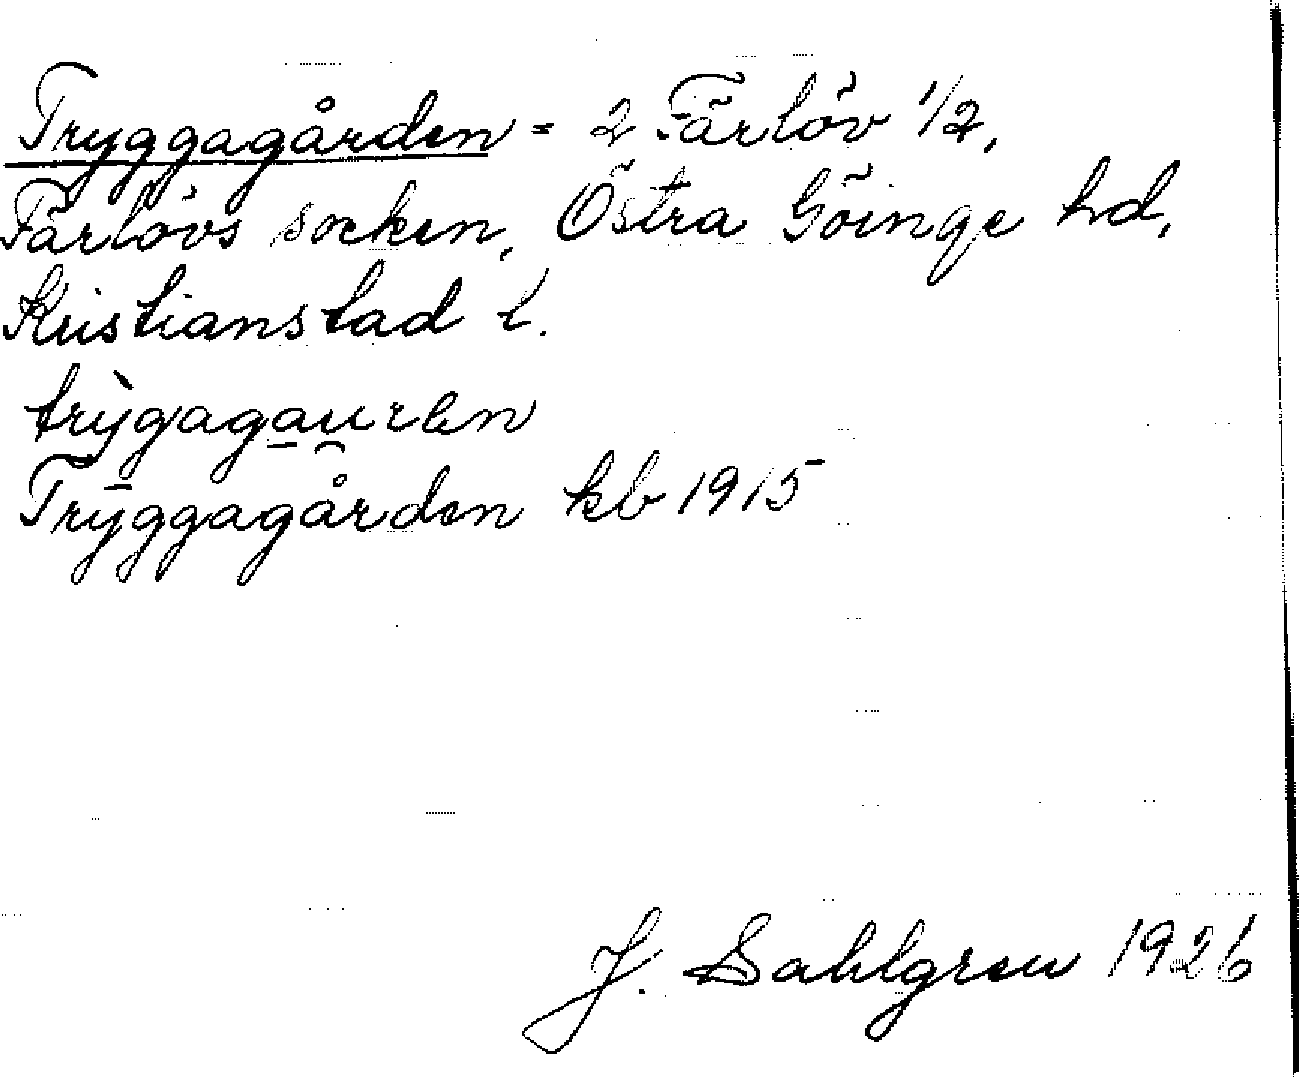 Tryggagården = 2 Färlöv 1/2,
Färlövs socken, Östra Göinge hd,
Kristianstad l.
trỳgagau̯ren
Tryggagården kb 1915
J. Sahlgren 1926